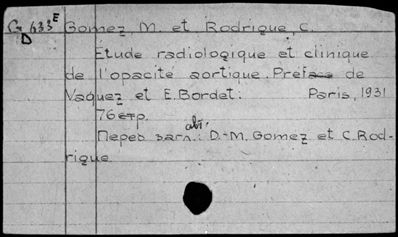 G 433 E Gomez, M. et Rodrigue, C.
D
Etude radiologique et clinique
de l'opacité aortique. Preface de
Vaquez et E. Bordet: Paris, 1931
76 стр.
авт.
Перед загл.: D-M. Gomez et C. Rod-
rigue